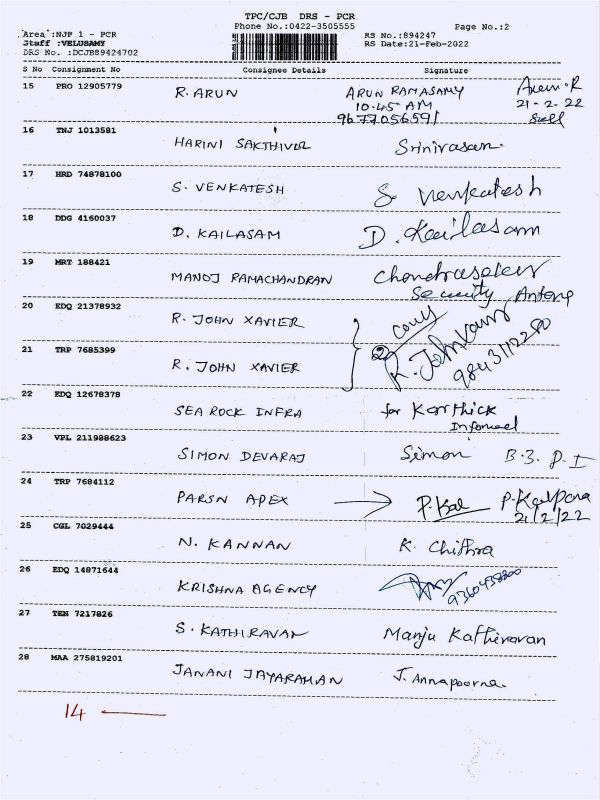 TPC/CJB DRS - PCR
Phone No.:0422-3505555 Page No.:2
Area :NJF 1 - PCR RS No.:894247
Staff :VELUSAMY RS Date:21-Feb-2022
DRS No. :DCJB89424702
S No Consignment No Consignee Details Signature
15 PRO 12905779 R. ARUN ARUN RAMASAMY Arun.R
10.45 AM 21-2-22
9677056591
16 TNJ 1013581 HARINI SAKTHIVEL Srinivasan
17 HRD 74878100 S. VENKATESH S. Venkatesh
18 DDG 4160037 D. KAILASAM D. Kailasam
19 MRT 188421 MANOJ RAMACHANDRAN Chandrasekar
Security Antony
20 EDQ 21378932 R. JOHN XAVIER
21 TRP 7685399 R. JOHN XAVIER
22 EDQ 12678378 SEA ROCK INFRA for Karthick
Informed
23 VPL 211988623 SIMON DEVARAJ Simon B.3. P.I
24 TRP 7684112 PARSN APEX P. Kal P. Kalpana
21/2/22
25 CGL 7029444 N. KANNAN K. Chithra
26 EDQ 14871644 KRISHNA AGENCY
27 TEN 7217826 S. KATHIRAVAN Manju Kathiravan
28 MAA 275819201 JANANI JAYARAMAN J. Annapoorna.
14